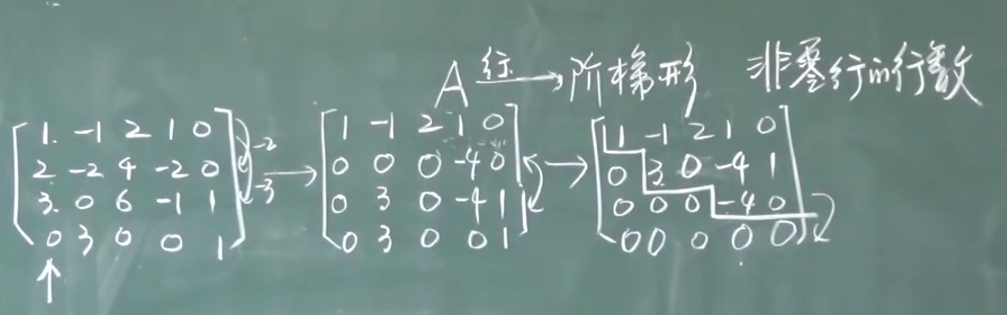 A 行→ 阶梯形 非零行的行数
1 -1 2 1 0
2 -2 4 -2 0
3 0 6 -1 1
0 3 0 0 1
-2
-3
→
1 -1 2 1 0
0 0 0 -4 0
0 3 0 -4 1
0 3 0 0 1
→
1 -1 2 1 0
0 3 0 -4 1
0 0 0 -4 0
0 0 0 0 0